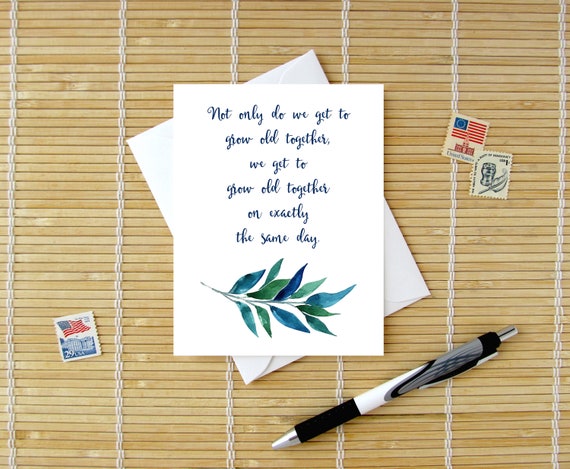 Not only do we get to
grow old together,
we get to
grow old together
on exactly
the same day.
29 USA